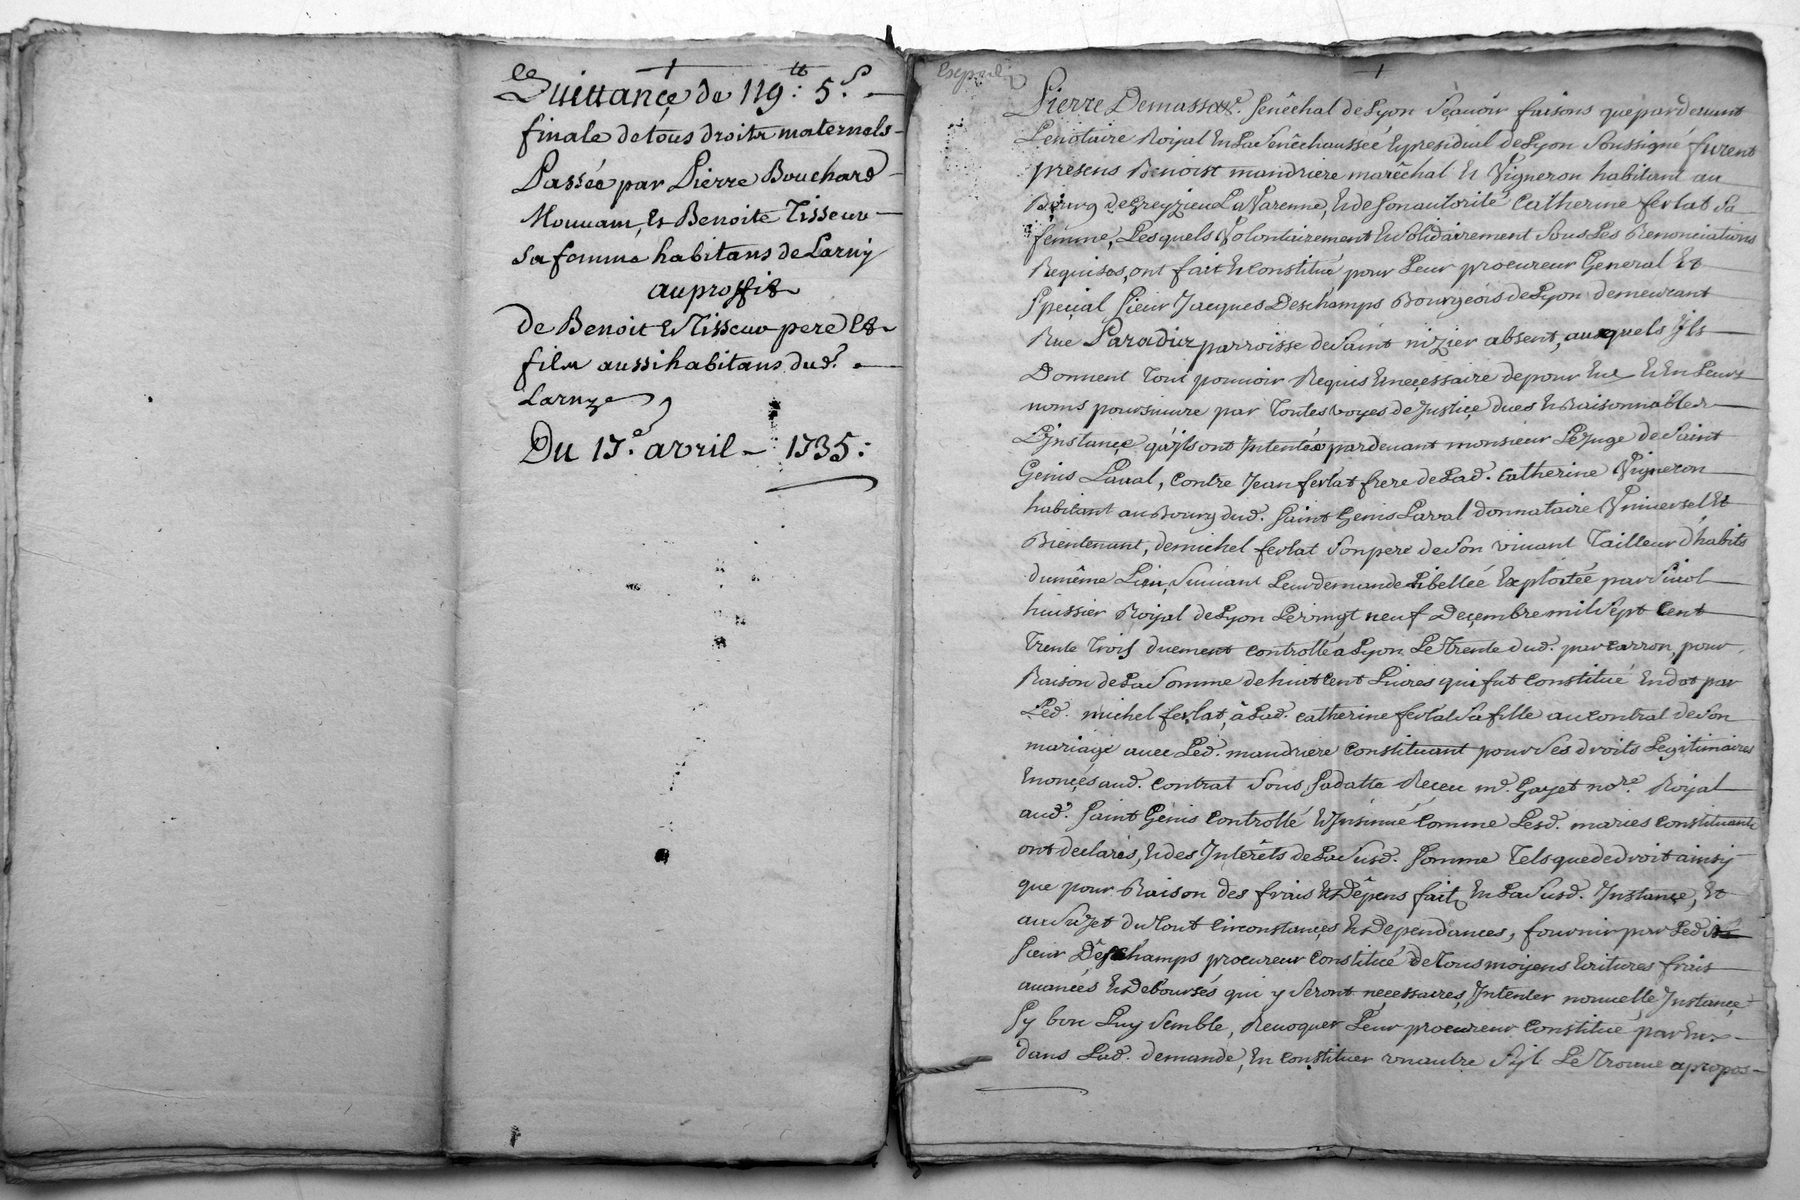 Quittançe de 119.tt 5.s
finale de tous droits maternels
Passée par Pierre Bouchard
Mouvam, & Benoite Tisseur
Sa femme habitans de Larny
au proffit
de Benoit & Tisseur pere Et
fils aussi habitans dud.
Larnze
Du 17.e avril - 1735:
Pierre Demasso &c. Senêchal de Lyon Sçauoir faisons que pardeuant
Le notaire Roÿal En La Senêchaussée & presidial de Lyon Soussigné furent
presens Benoist mandriere marêchal & Vigneron habitant au
Bourg de Greyzieu La Varenne, & de Son autorité Catherine ferlat Sa
femme, Lesquels Volontairement & Solidairement Sous Les Renonciations
Requises, ont fait & Constitué pour Leur procureur General Et
Speçial Sieur Jacques Deschamps Bourgeois de Lyon demeurant
Rue Paradix parroisse de Saint nizier absent, auxquels Ils
Donnent Tout pouuoir Requis & neçessaire de pour Eux & En Leurs
noms poursuiure par Toutes voyes de Justiçe dues & Raisonnables
L'Instançe qu'ils ont Intentée pardeuant monsieur Le Juge de Saint
Genis Laual, Contre Jean ferlat frere de Lad. Catherine Vigneron
habitant au Bourg dud. Saint Genis Larral donnataire Vniuersel Et
Bientenant, de michel ferlat Son pere de Son viuant Tailleur d'habits
du même Lieu, Suiuant Leur demande Libellée Exploitée par
huissier Roÿal de Lyon Le vingt neuf Deçembre mil Sept Cent
Trente Trois duement Controllé a Lyon Le Trente dud. par Carron, pour
Raison de La Somme de huit Cent Liures qui fut Constitué En dot par
Led. michel ferlat, à Lad. Catherine ferlat Sa fille au Contrat de Son
mariage auec Led. mandriere Constituant pour Ses droits Legitimaires
Enonçés aud. Contrat Sous Sa datte Reçeu m.e Gayet no.re Roÿal
aud. Saint Genis Controllé & Insinué Comme Lesd. mariés Constituants
ont declarés, & des Interêts de La Susd. Somme Tels que de droit ainsÿ
que pour Raison des frais & Dêpens fait En La Susd. Instançe, Et
au Sujet du Tout Circonstançes & Dependances, fournir par Led.
Sieur Deschamps procureur Constitué de Tous moÿens Ecritures frais
auancés & Deboursés qui y Seront neçessaires, Intenter nouuelle Instançe
Sy bon Luy Semble, Reuoquer Leur procureur Constitué par Eux
dans Lad. demande, En Constituer vn autre S'il Le Trouue apropos